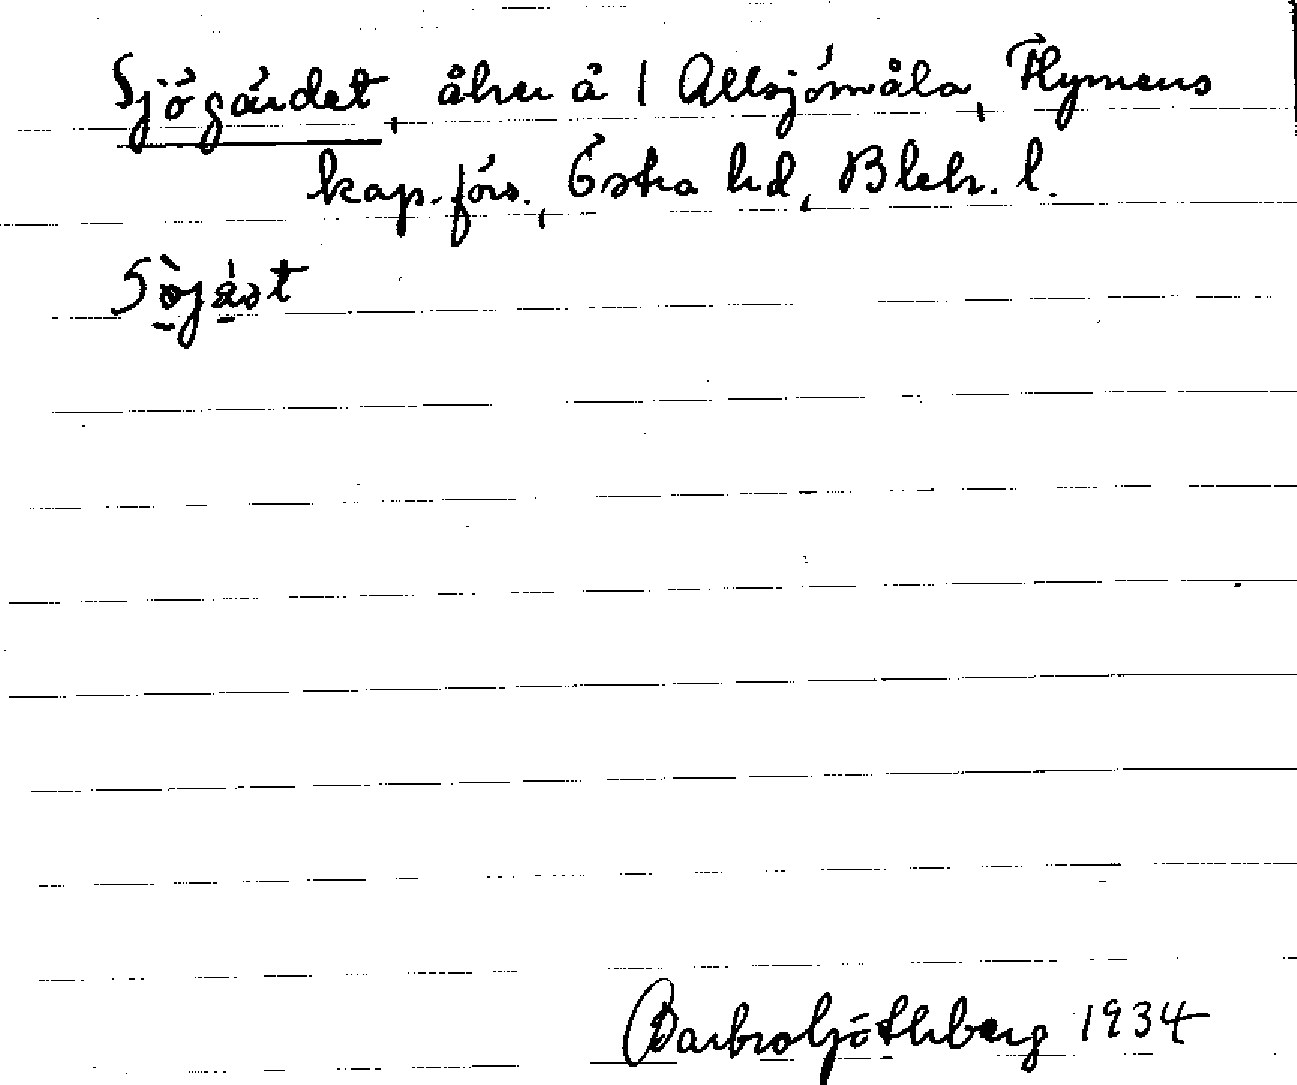 Sjögärdet, åker å 1 Allsjömåla, Flymens
kap.förs., Östra hd, Blek. l.
Barbro Göthberg 1934